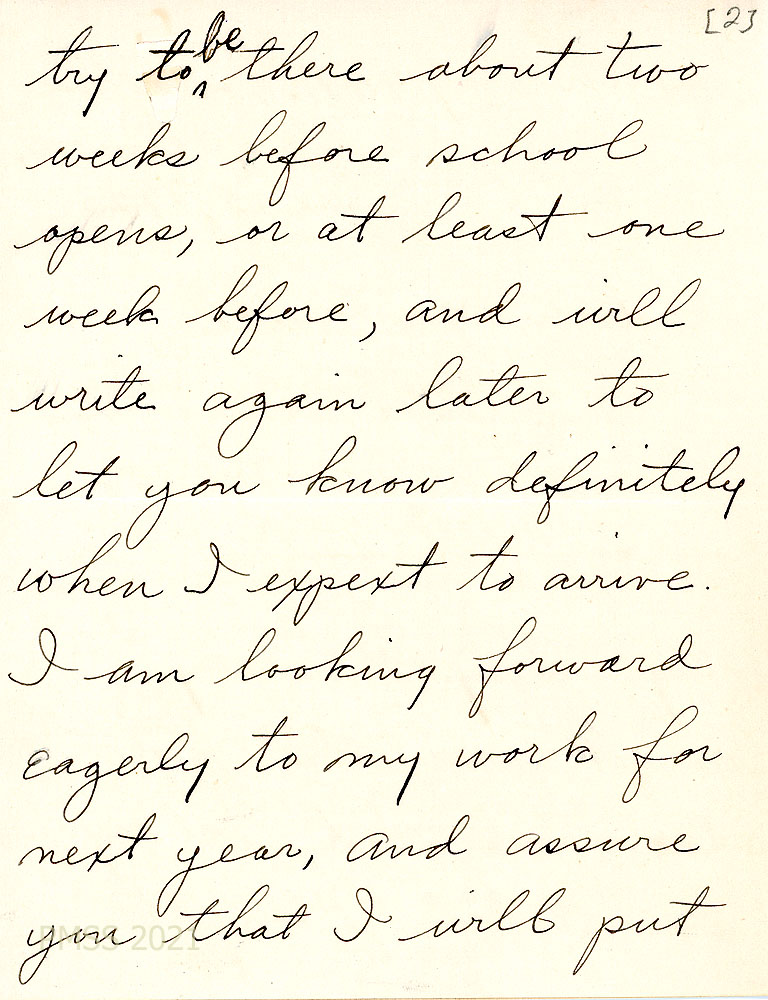 [2]
try to be there about two
weeks before school
opens, or at least one
week before, and will
write again later to
let you know definitely
when I expext to arrive.
I am looking forward
eagerly to my work for
next year, and assure
you that I will put
PMSS 2021